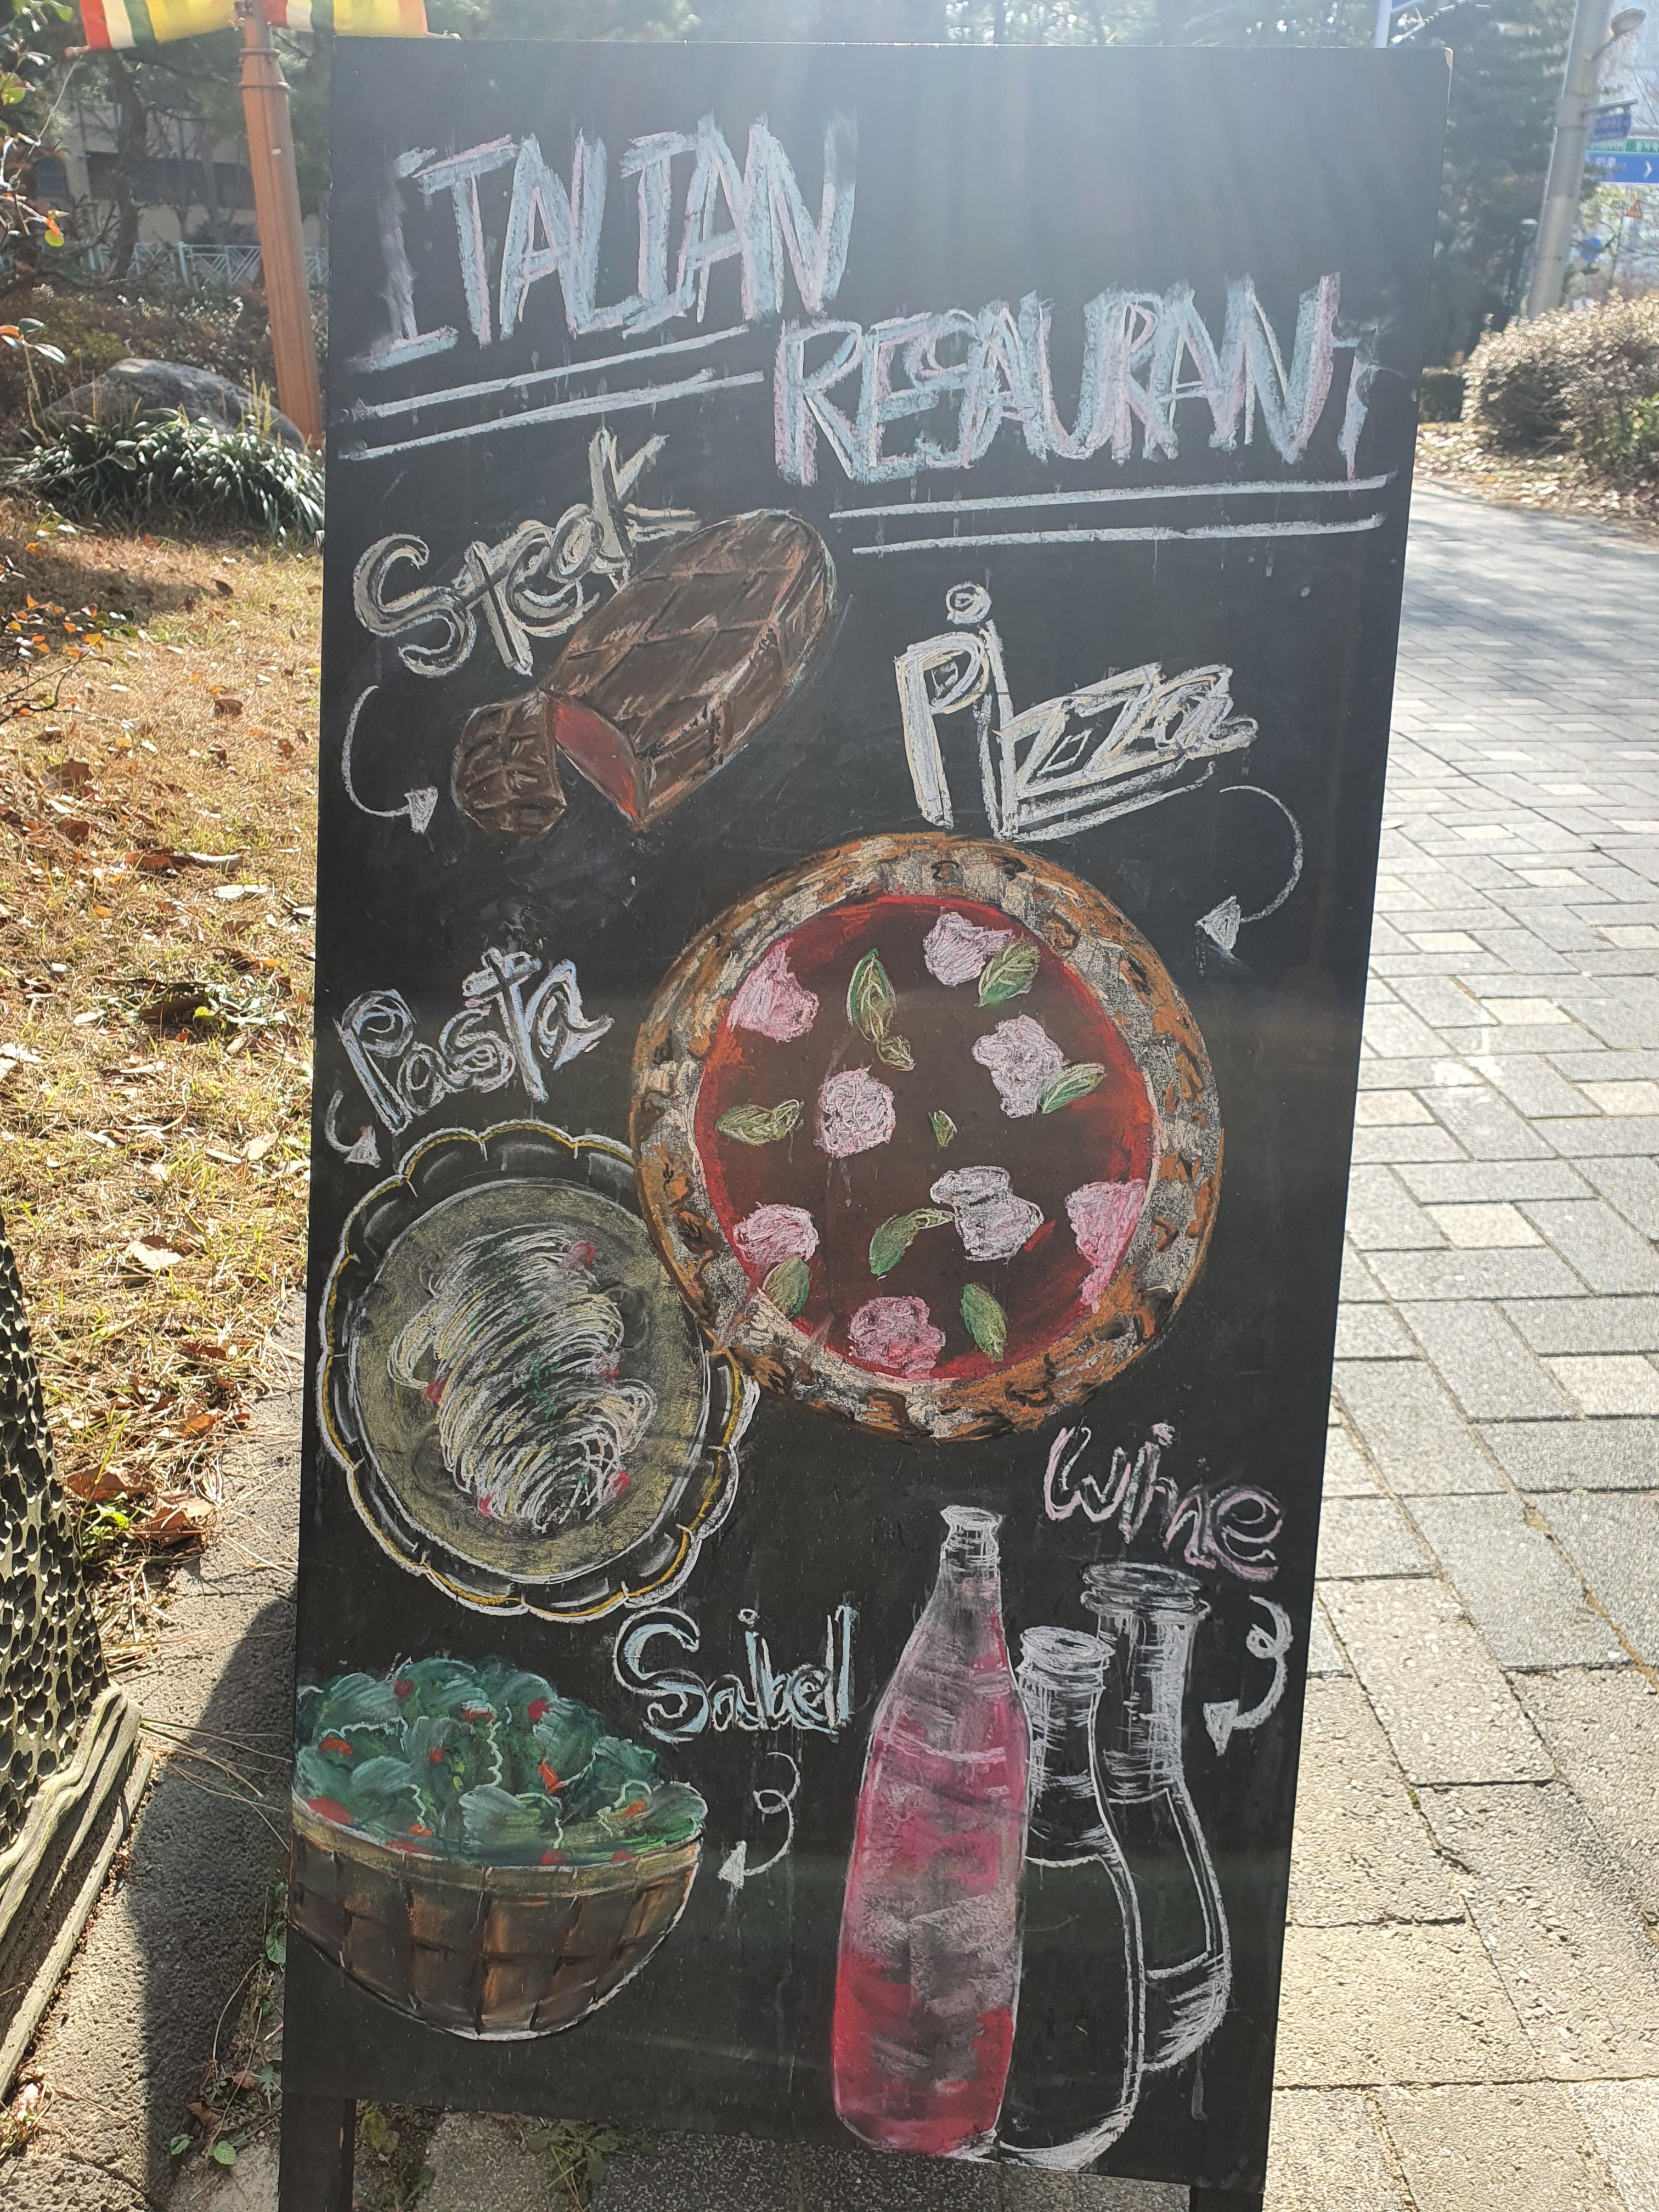 ITALIAN
RESAURANT
Steak
Pizza
Pasta
Wine
Salad